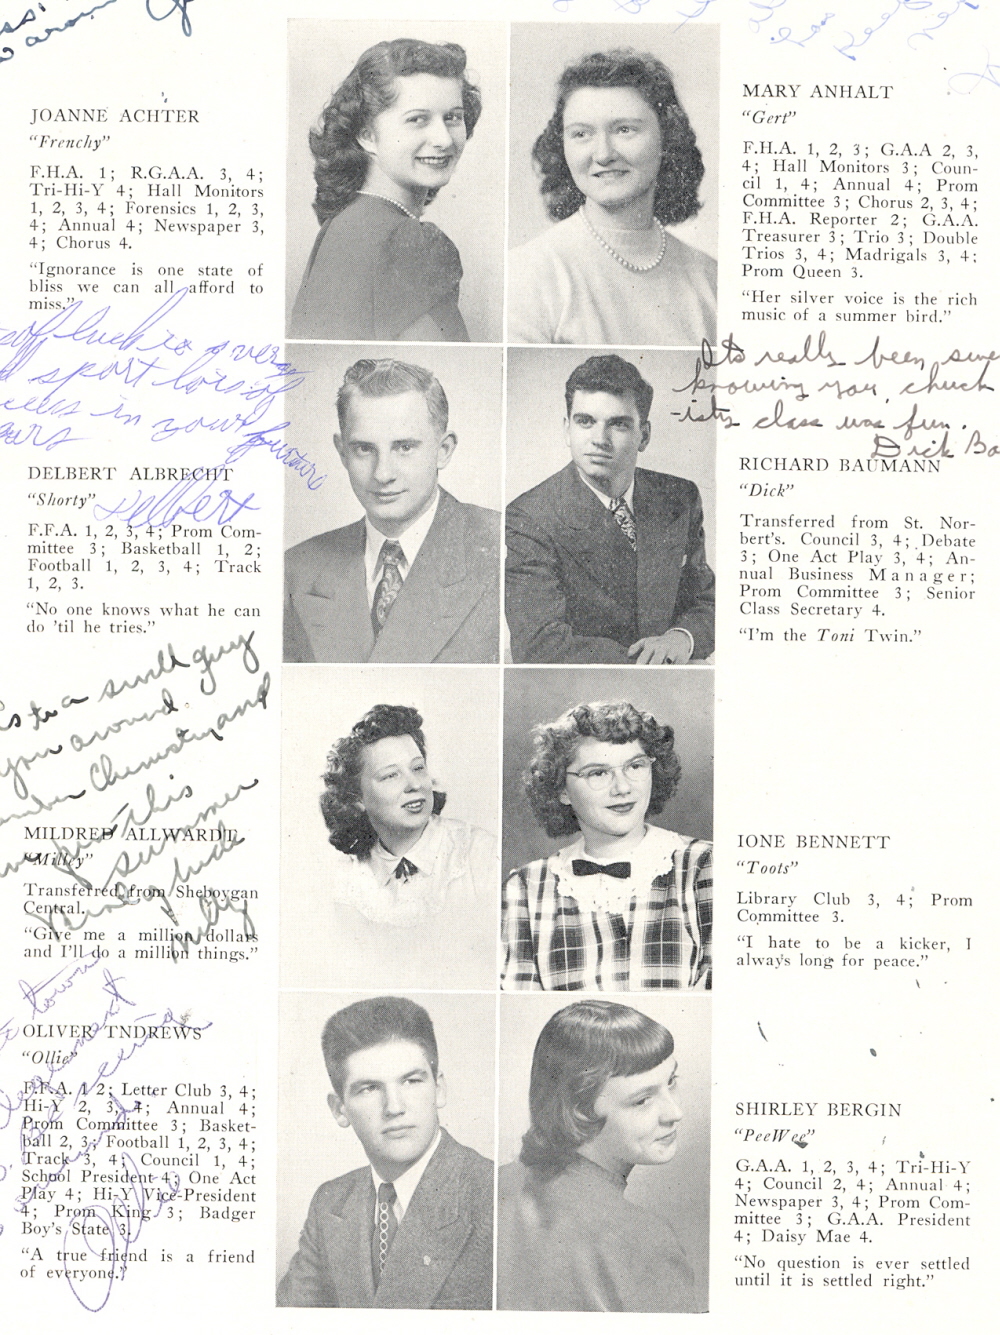 JOANNE ACHTER
"Frenchy"
F.H.A. 1; R.G.A.A. 3, 4;
Tri-Hi-Y 4; Hall Monitors
1, 2, 3, 4; Forensics 1, 2, 3,
4; Annual 4; Newspaper 3,
4; Chorus 4.
"Ignorance is one state of
bliss we can all afford to
miss."
luck to a very
sport lots of
in your future
years
Delbert
DELBERT ALBRECHT
"Shorty"
F.F.A. 1, 2, 3, 4; Prom Com-
mittee 3; Basketball 1, 2;
Football 1, 2, 3, 4; Track
1, 2, 3.
"No one knows what he can
do 'til he tries."
to a swell guy
you around.
Chemistry and
this
summer
luck
Milly
MILDRED ALLWARDT
"Milley"
Transferred from Sheboygan
Central.
"Give me a million dollars
and I'll do a million things."
town
OLIVER TNDREWS
"Ollie"
F.F.A. 1 2; Letter Club 3, 4;
Hi-Y 2, 3, 4; Annual 4;
Prom Committee 3; Basket-
ball 2, 3; Football 1, 2, 3, 4;
Track 3, 4; Council 1, 4;
School President 4; One Act
Play 4; Hi-Y Vice-President
4; Prom King 3; Badger
Boy's State 3.
"A true friend is a friend
of everyone."
Ollie
MARY ANHALT
"Gert"
F.H.A. 1, 2, 3; G.A.A 2, 3,
4; Hall Monitors 3; Coun-
cil 1, 4; Annual 4; Prom
Committee 3; Chorus 2, 3, 4;
F.H.A. Reporter 2; G.A.A.
Treasurer 3; Trio 3; Double
Trios 3, 4; Madrigals 3, 4;
Prom Queen 3.
"Her silver voice is the rich
music of a summer bird."
Its really been swe
knowing you, chuck
class was fun.
Dick Ba
RICHARD BAUMANN
"Dick"
Transferred from St. Nor-
bert's. Council 3, 4; Debate
3; One Act Play 3, 4; An-
nual Business Manager;
Prom Committee 3; Senior
Class Secretary 4.
"I'm the Toni Twin."
IONE BENNETT
"Toots"
Library Club 3, 4; Prom
Committee 3.
"I hate to be a kicker, I
always long for peace."
SHIRLEY BERGIN
"PeeWee"
G.A.A. 1, 2, 3, 4; Tri-Hi-Y
4; Council 2, 4; Annual 4;
Newspaper 3, 4; Prom Com-
mittee 3; G.A.A. President
4; Daisy Mae 4.
"No question is ever settled
until it is settled right."